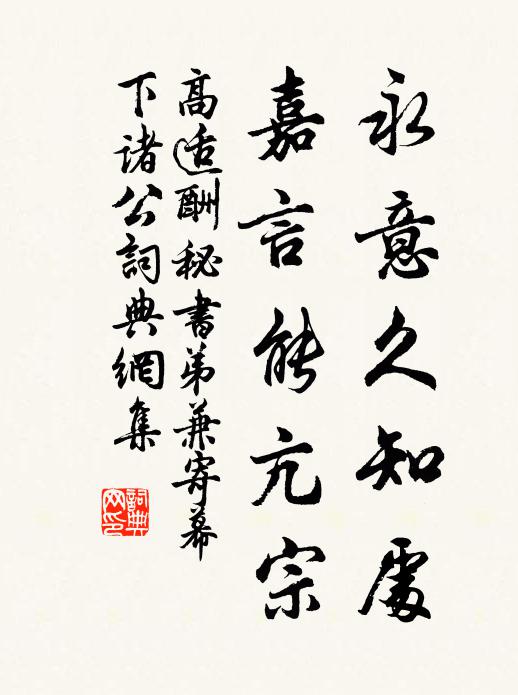 永意久知處
嘉言能亢宗
高适酬秘書弟兼寄幕
下諸公詞典網集
詞典网印